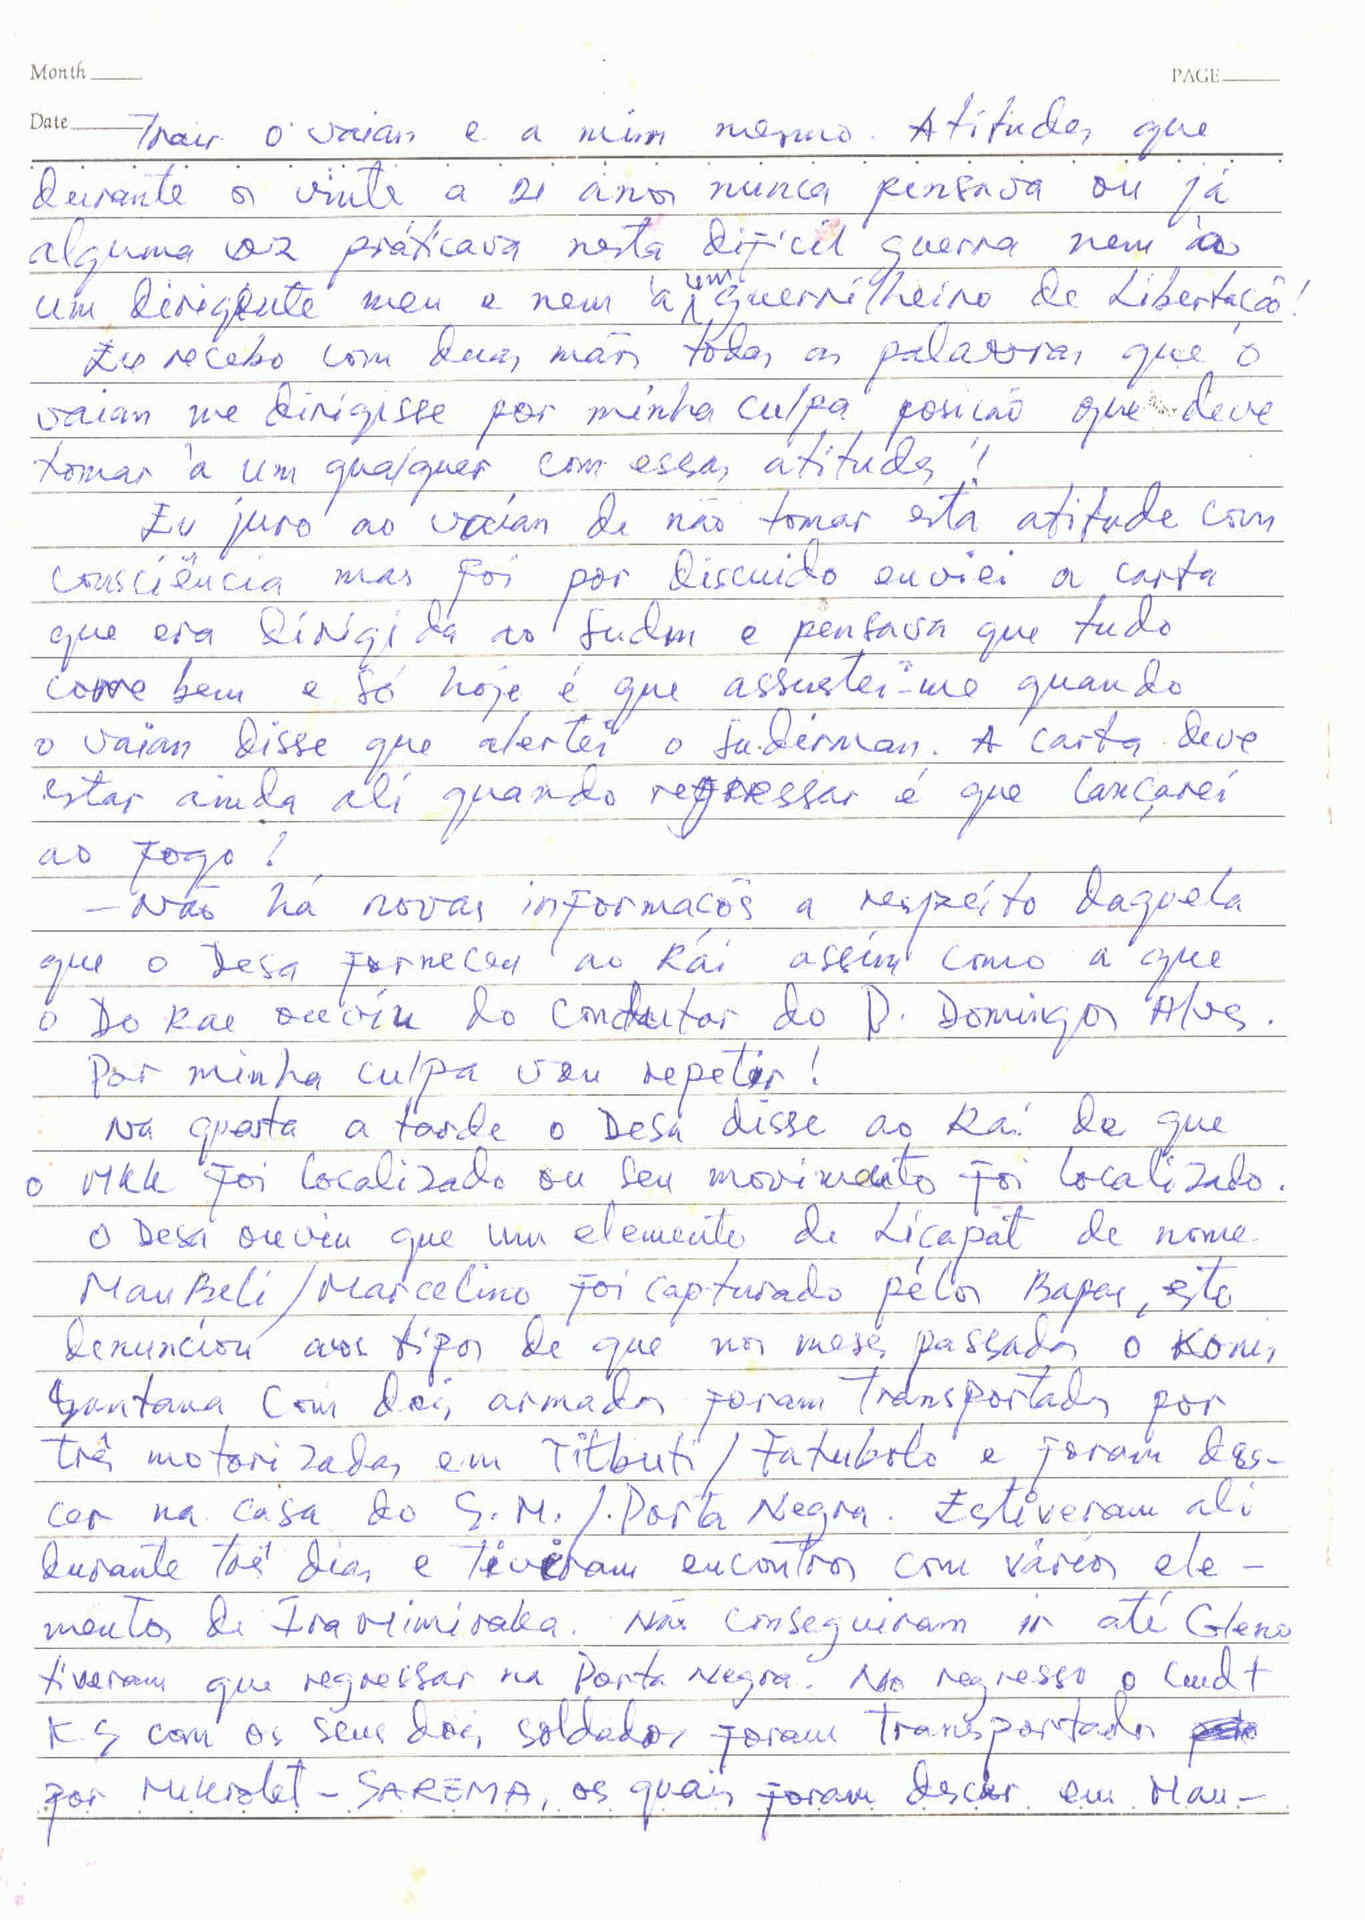 Month
PAGE
Date
Trair o vaian e a mim mesmo. Atitudes que
durante os vinte a 21 anos nunca pensava ou já
alguma vez práticava nesta difícil guerra nem àos
um dirigente meu e nem à um guerrilheiro de Libertação!
Eu recebo com duas mãos todas as palavras que o
vaian me dirigisse por minha culpa posicão que deve
tomar à um qualquer com essas atitudes!
Eu juro ao vaian de não tomar esta atitude com
consciência mas foi por discuido enviei a carta
que era dirigida ao Sudm e pensava que tudo
corre bem e só hoje é que assustei-me quando
o vaian disse que alertei o Su.derman. A carta deve
estar ainda ali quando regressar é que lançarei
ao fogo!
- Não há novas informacõs a respeito daquela
que o Desa forneceu ao Rái assim como a que
o Do Rae ouviu do condutor do D. Domingos Alves.
Por minha culpa vou repetir!
Na quarta a tarde o Desa disse ao Rai de que
o MKK foi localizado ou seu movimento foi localizado.
O Desa ouviu que um elemento de Liçapat de nome
MauBeli/Marcelino foi capturado pélos Bapas, esto
denunciou aos tipos de que nos meses passados o Konis
Santana com dois armados foram transportados por
três motorizadas em Titbuti/Fatubolo e foram des-
cer na casa do S.M./.Porta Negra. Estiveram ali
durante três dias e tiveram encontros com vários ele-
mentos de Fra Mimiraka. Não conseguiram ir até Gleno
tiveram que regressar na Porta Negra. No regresso o Cmdt
K.S com os seus dois soldados foram transportados
por Mikrolet - SAREMA, os quais foram descer em Mau-